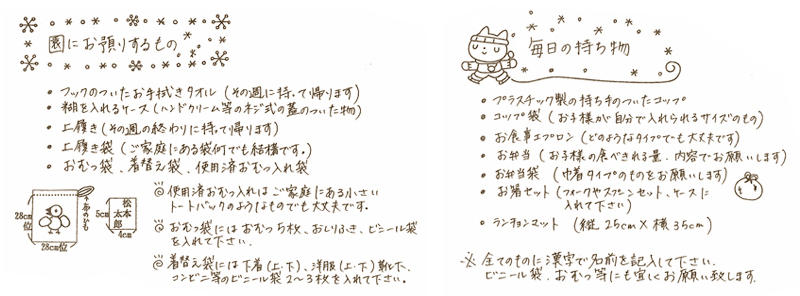 園にお預りするもの
・フックのついたお手拭きタオル（その週に持って帰ります）
・糊を入れるケース（ハンドクリーム等のネジ式の蓋のついた物）
・上履き（その週の終わりに持って帰ります）
・上履き袋（ご家庭にある袋何でも結構です。）
・おむつ袋、着替え袋、使用済おむつ入れ袋
◎使用済おむつ入れはご家庭にある小さい
トートバックのようなものでも大丈夫です。
◎おむつ袋にはおむつ5枚、おしりふき、ビニール袋
を入れて下さい。
◎着替え袋には下着（上・下）、洋服（上・下）靴下、
コンビニ等のビニール袋2〜3枚を入れて下さい。
28cm位
28cm位
5cm
松本
太郎
4cm
毎日の持ち物
・プラスチック製の持ち手のついたコップ
・コップ袋（お子様が自分で入れられるサイズのもの）
・お食事エプロン（どのようなタイプでも大丈夫です）
・お弁当（お子様の食べきれる量、内容でお願いします）
・お弁当袋（巾着タイプのものをお願いします）
・お箸セット（フォークやスプーンセット、ケースに
入れて下さい）
・ランチョンマット（縦25cm×横35cm）
※全てのものに漢字で名前を記入して下さい。
ビニール袋、おむつ等にも宜しくお願い致します。